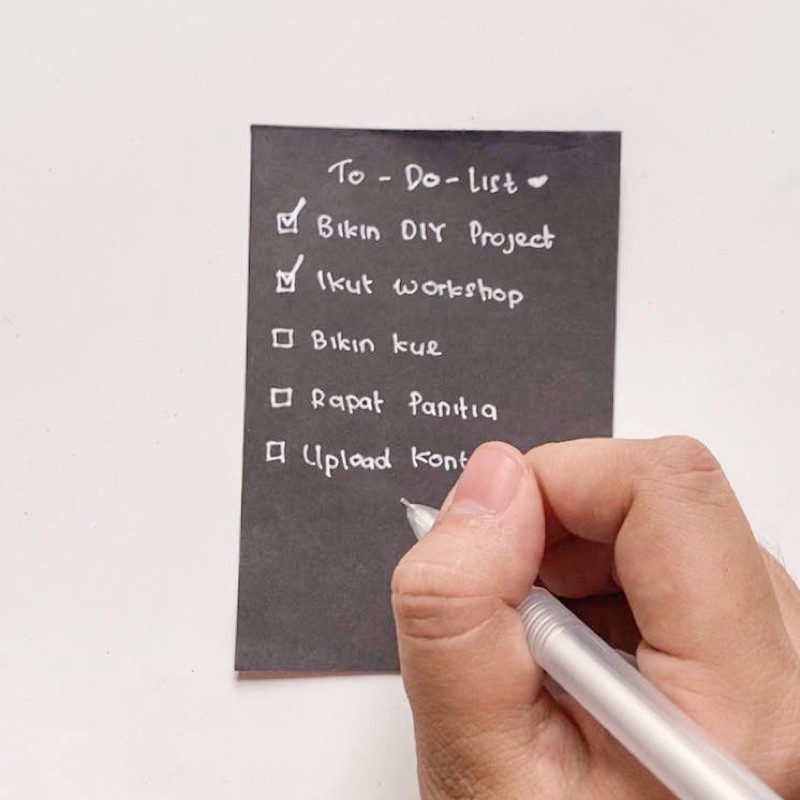 To - Do - List
Bikin DIY Project
Ikut workshop
Bikin kue
Rapat Panitia
Upload